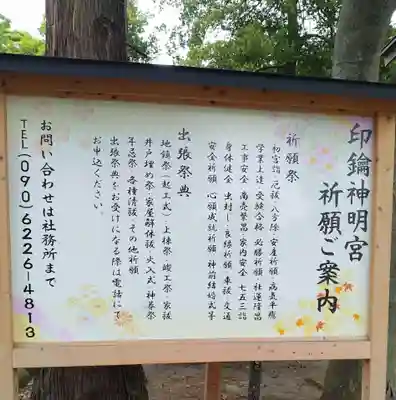 印鑰神明宮
祈願ご案内
祈願祭
初宮詣・厄祓・八方除・安産祈願・病気平癒
学業上達・受験合格・必勝祈願・社運隆昌
工事安全・商売繁昌・家内安全・七五三詣
身体健全・虫封じ・良縁祈願・車祓・交通
安全祈願・心願成就祈願・神前結婚式等
出張祭典
地鎮祭(起工式)・上棟祭・竣工祭・家祓
井戸埋め祭・家屋解体祓・火入式・神葬祭
年忌祭・各種清祓・その他祈願
出張祭典をお受けになる際は電話にて
お申込ください。
お問い合わせは社務所まで
TEL(090)6226-4813